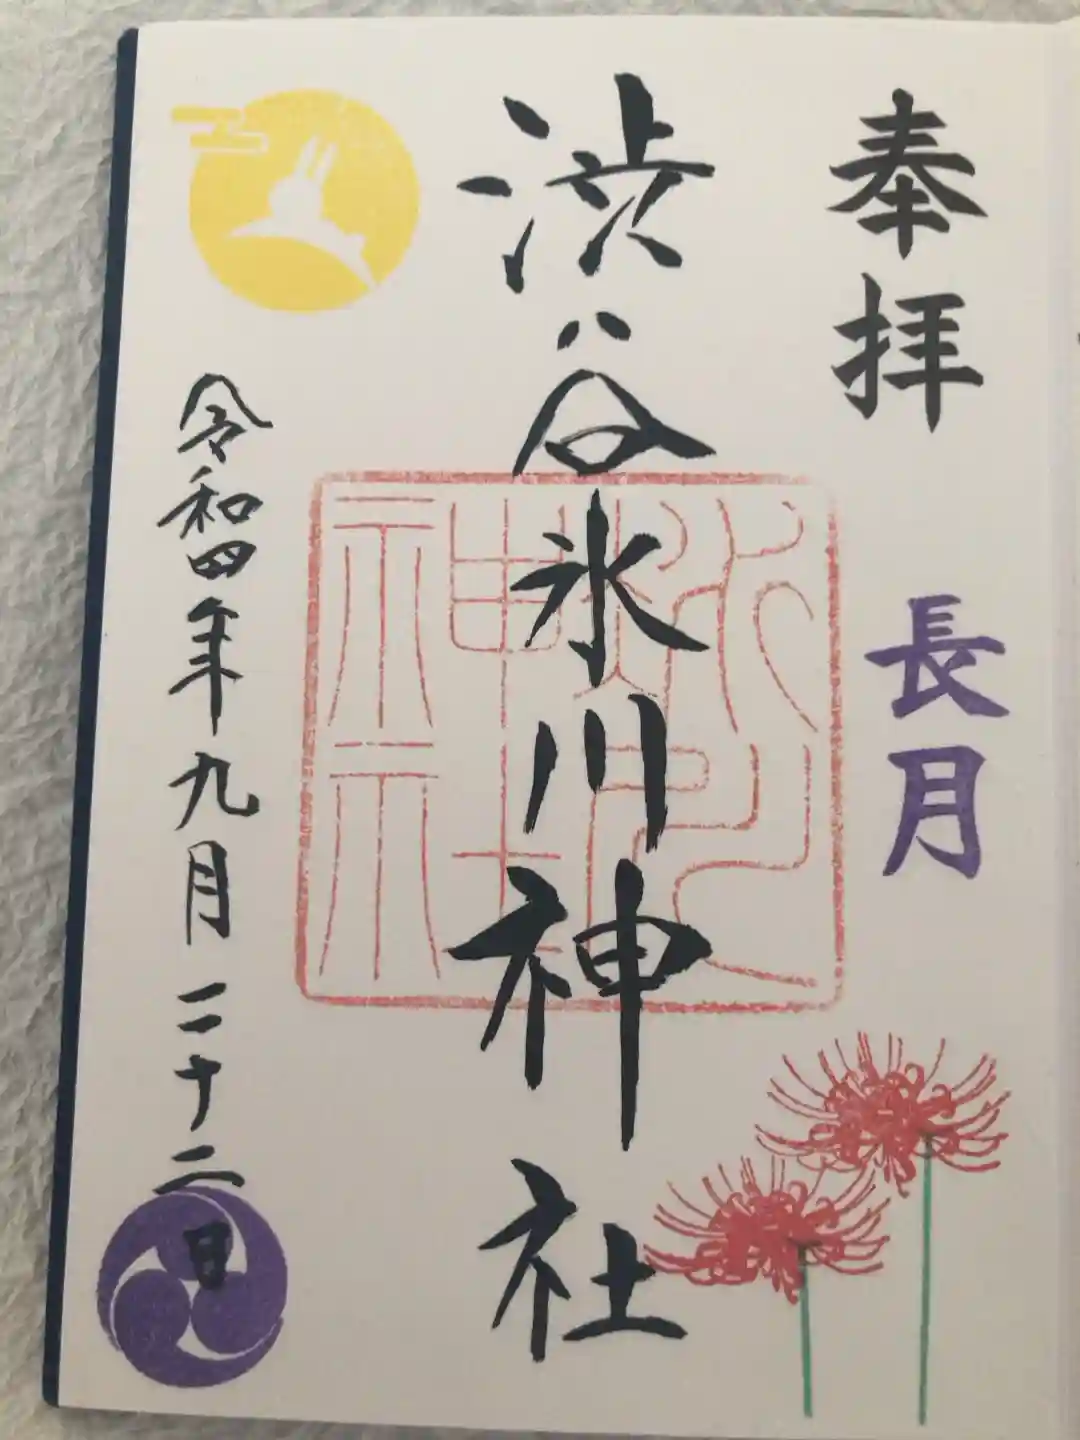 奉拝
長月
渋谷氷川神社
氷川神社
令和四年九月二十二日